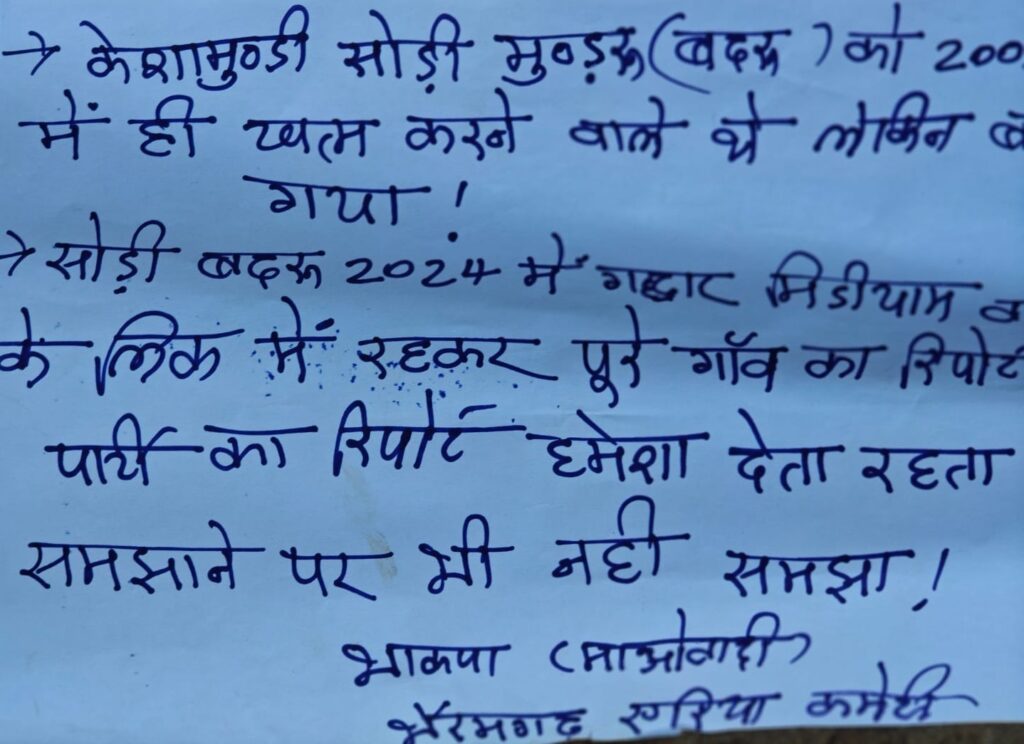 → केशामुण्डी सोड़ी मुण्ड़रू (बदरू) को 200
में ही खत्म करने वाले थे लेकिन
गया !
→ सोड़ी बदरू 2024 में गद्दार मिडीयाम
के लिंक में रहकर पूरे गाँव का रिपोर्ट
पार्टी का रिपोर्ट हमेशा देता रहता
समझाने पर भी नही समझा !
भाकपा (माओवादी)
भैरमगढ एरिया कमेटी